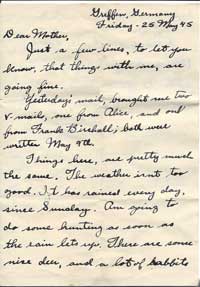 Greffen, Germany
Friday - 25 May 45
Dear Mother,
Just a few lines, to let you
know, that things with me, are
going fine.
Yesterday's mail, brought me two
v-mails, one from Alice, and one
from Frank Birchall; both were
written May 9th.
Things here, are pretty much
the same. The weather isn't too
good. It has rained every day,
since Sunday. Am going to
do some hunting as soon as
the rain lets up. There are some
nice deer, and a lot of rabbits